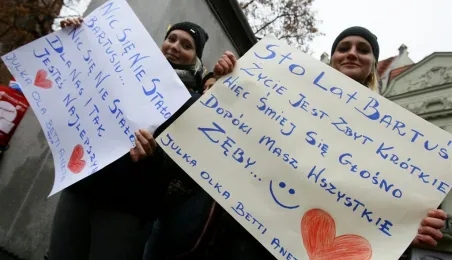 Nic się nie stało
Bartusiu...
Nic się nie stało
Dla nas i tak
jesteś najlepszy
Julka Olka Betti
Sto lat Bartuś
Życie jest zbyt krótkie
więc śmiej się głośno
dopóki masz wszystkie
zęby...
Julka Olka Betti Anet